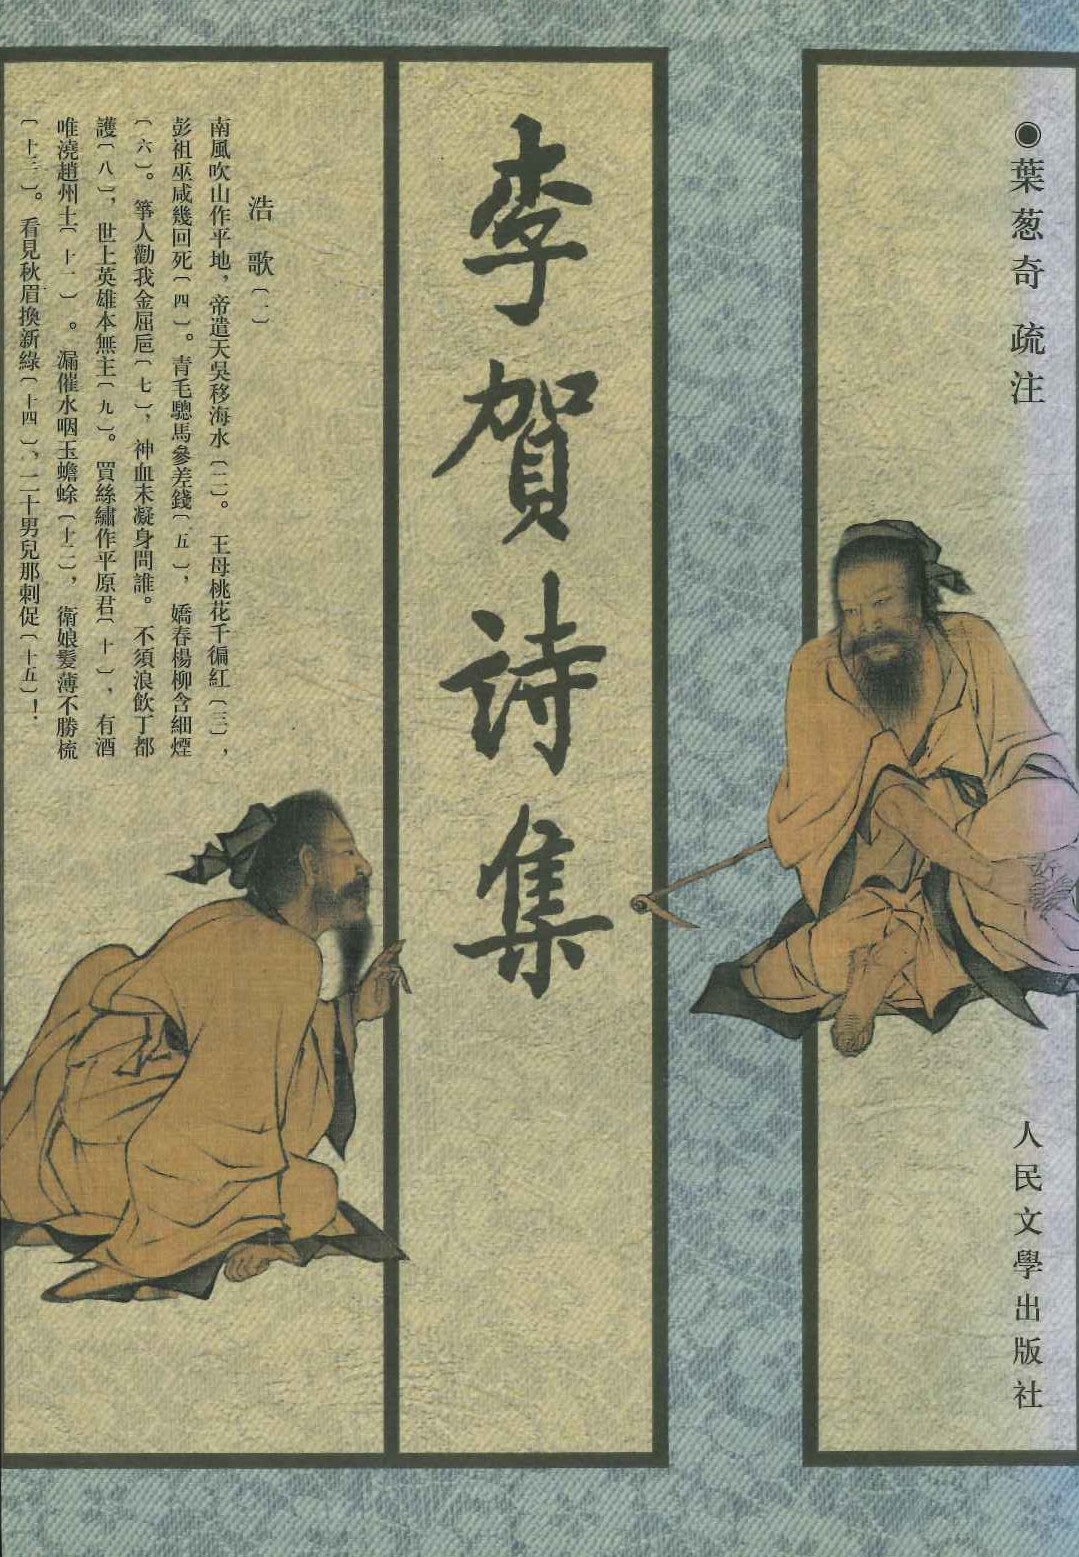 ◉葉葱奇 疏注
人民文學出版社
李賀詩集
浩歌〔一〕
南風吹山作平地，帝遣天吳移海水〔二〕。王母桃花千徧紅〔三〕，
彭祖巫咸幾回死〔四〕。青毛驄馬參差錢〔五〕，嬌春楊柳含細煙
〔六〕。箏人勸我金屈巵〔七〕，神血未凝身問誰。不須浪飲丁都
護〔八〕，世上英雄本無主〔九〕。買絲繡作平原君〔十〕，有酒
唯澆趙州土〔十一〕。漏催水咽玉蟾蜍〔十二〕，衛娘髮薄不勝梳
〔十三〕。看見秋眉換新綠〔十四〕，二十男兒那刺促〔十五〕！